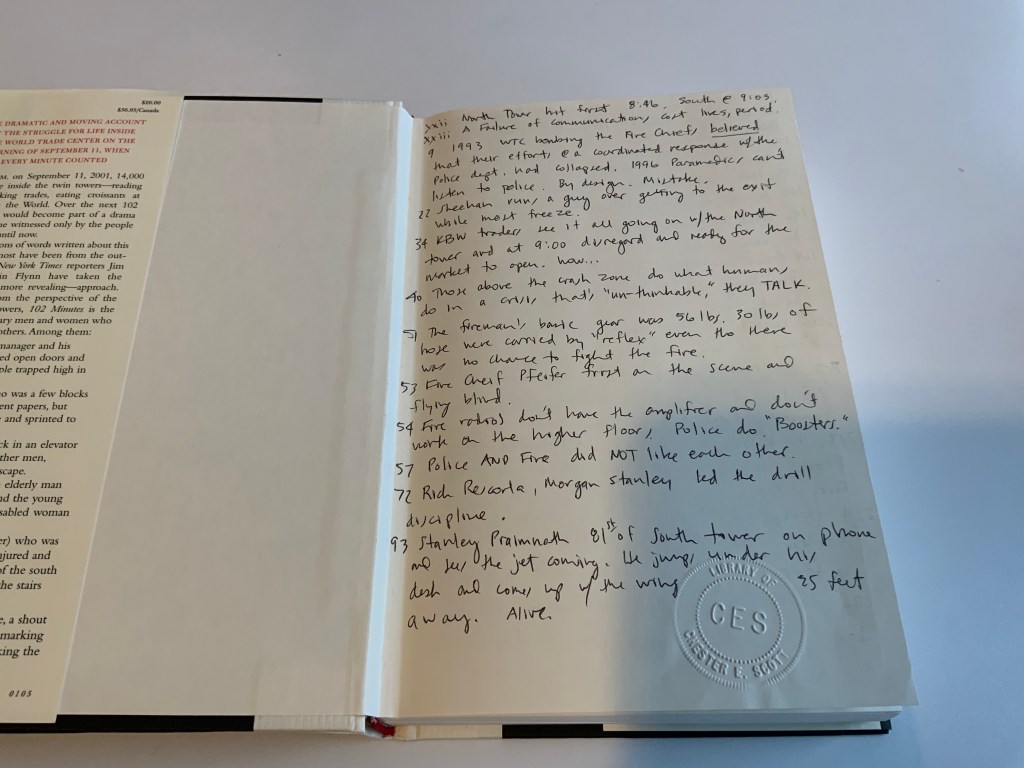 $26.00
$36.95/Canada
E DRAMATIC AND MOVING ACCOUNT
THE STRUGGLE FOR LIFE INSIDE
E WORLD TRADE CENTER ON THE
RNING OF SEPTEMBER 11, WHEN
EVERY MINUTE COUNTED
M. on September 11, 2001, 14,000
e inside the twin towers—reading
king trades, eating croissants at
the World. Over the next 102
would become part of a drama
ne witnessed only by the people
until now.
ons of words written about this
most have been from the out-
New York Times reporters Jim
in Flynn have taken the
more revealing—approach.
om the perspective of the
owers, 102 Minutes is the
ary men and women who
others. Among them:
manager and his
ed open doors and
ple trapped high in
ho was a few blocks
ent papers, but
e and sprinted to
ck in an elevator
ther men,
scape.
elderly man
nd the young
sabled woman
er) who was
njured and
of the south
the stairs
e, a shout
marking
king the
0105
xxii North Tower hit first 8:46. South @ 9:03.
xxiii A Failure of communications cost lives, period.
9 1993 WTC bombing the Fire Chiefs believed
that their efforts @ a coordinated response w/the
Police dept. had collapsed. 1996 Paramedics can't
listen to police. By design. Mistake.
22 Sheehan runs a guy over getting to the exit
while most freeze.
34 KBW traders see it all going on w/the North
tower and at 9:00 disregard and ready for the
market to open. how...
40 Those above the crash zone do what humans
do in a crisis that's "un-thinkable," they TALK.
51 The fireman's basic gear was 56 lbs. 30 lbs of
hose were carried by "reflex" even tho there
was no chance to fight the fire.
53 Fire Cheif Pfeifer first on the scene and
flying blind.
54 Fire radios don't have the amplifier and don't
work on the higher floors Police do. "Boosters."
57 Police AND Fire did NOT like each other.
72 Rick Rescorla, Morgan Stanley led the drill
discipline.
93 Stanley Praimnath 81st of South tower on phone
and sees the jet coming. He jumps under his
desk and comes up w/the wing 25 feet
away. Alive.
LIBRARY OF
CES
CHESTER E. SCOTT